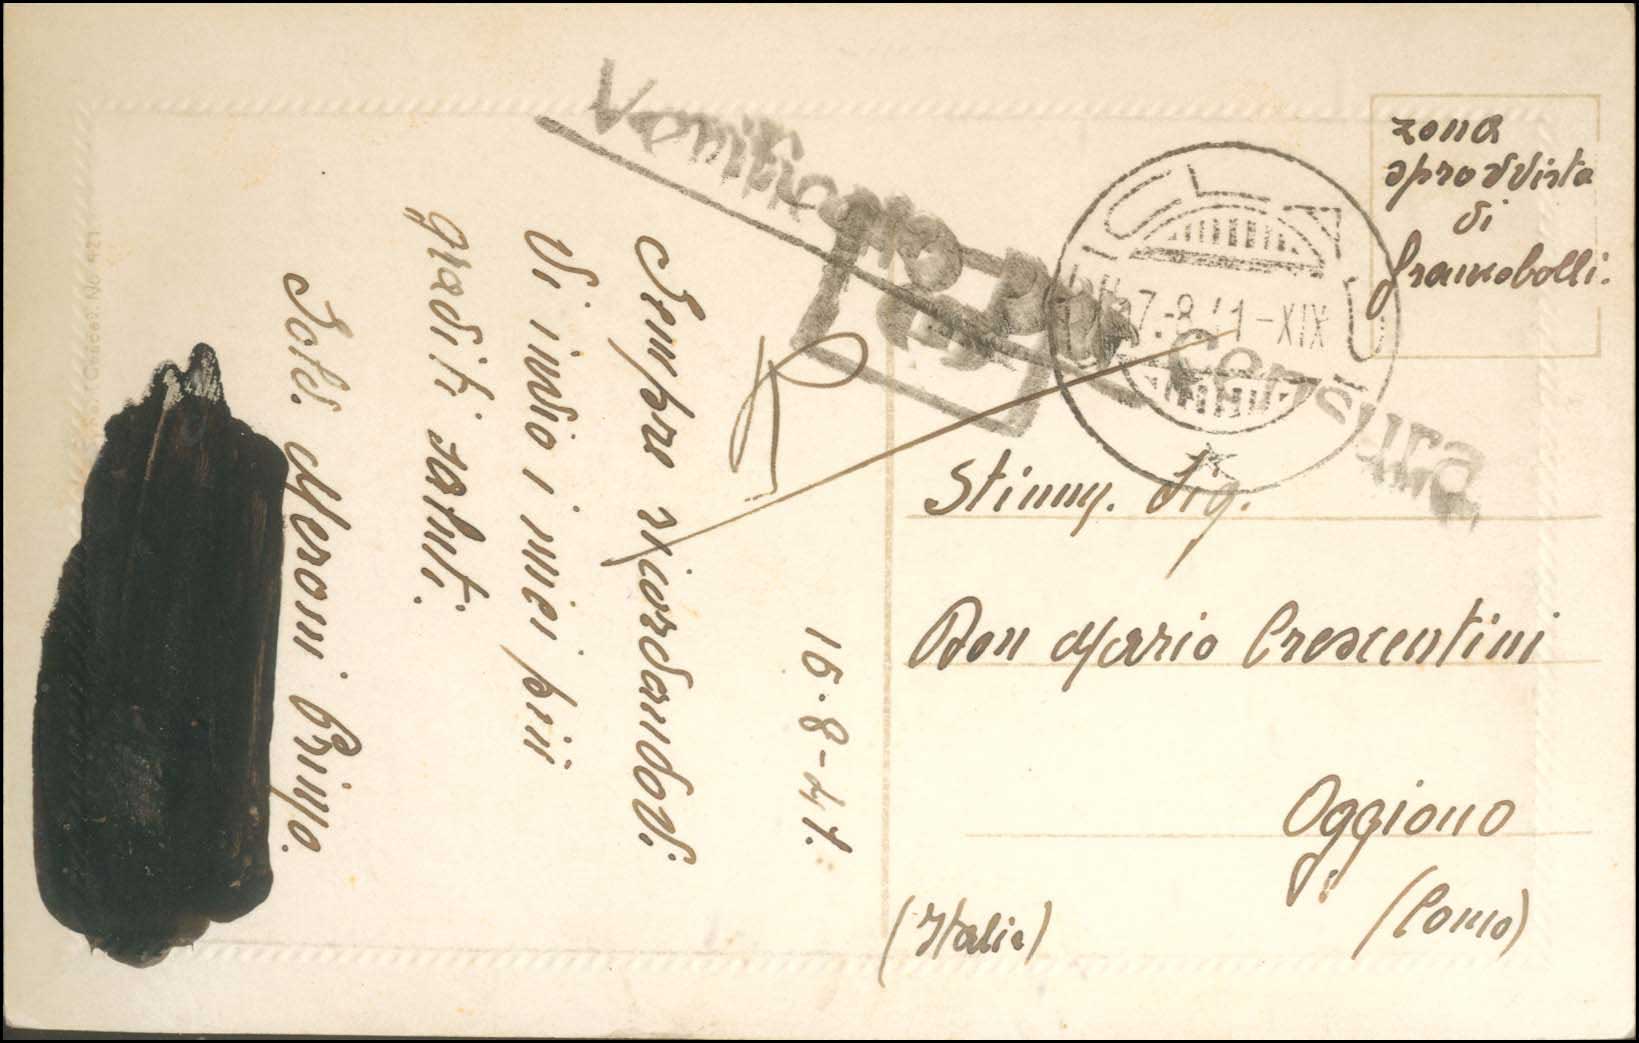 Verificato per Censura
7.-8.41-XIX
zona
sprovvista
di
francobolli.
15-8-41.
Sempre ricordandoVi
Vi invio i miei piu
graditi saluti.
Sold. Meroni Primo.
Stimmg. Sig.
Don Mario Crescentini
Oggiono
(Como)
(Italia)